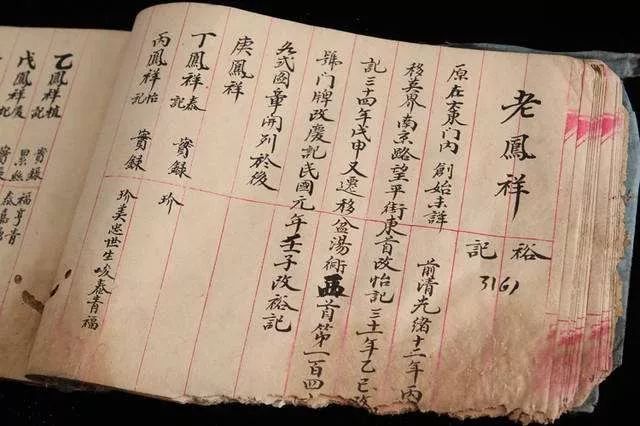 老鳳祥
裕記
3161
原在大東門內 創始未詳 前清光緒十二年丙
移英界南京路望平街東首改怡記三十一年乙巳改
記三十四年戊申又遷移盆湯衖西首第一百四
號門牌改慶記民國元年壬子改裕記
各式圖章開列於後
庚鳳祥
丁鳳祥泰記 寶錄 珍
丙鳳祥怡記 寶錄 珍美忠世生峻泰青福
乙鳳祥植記
戊鳳祥